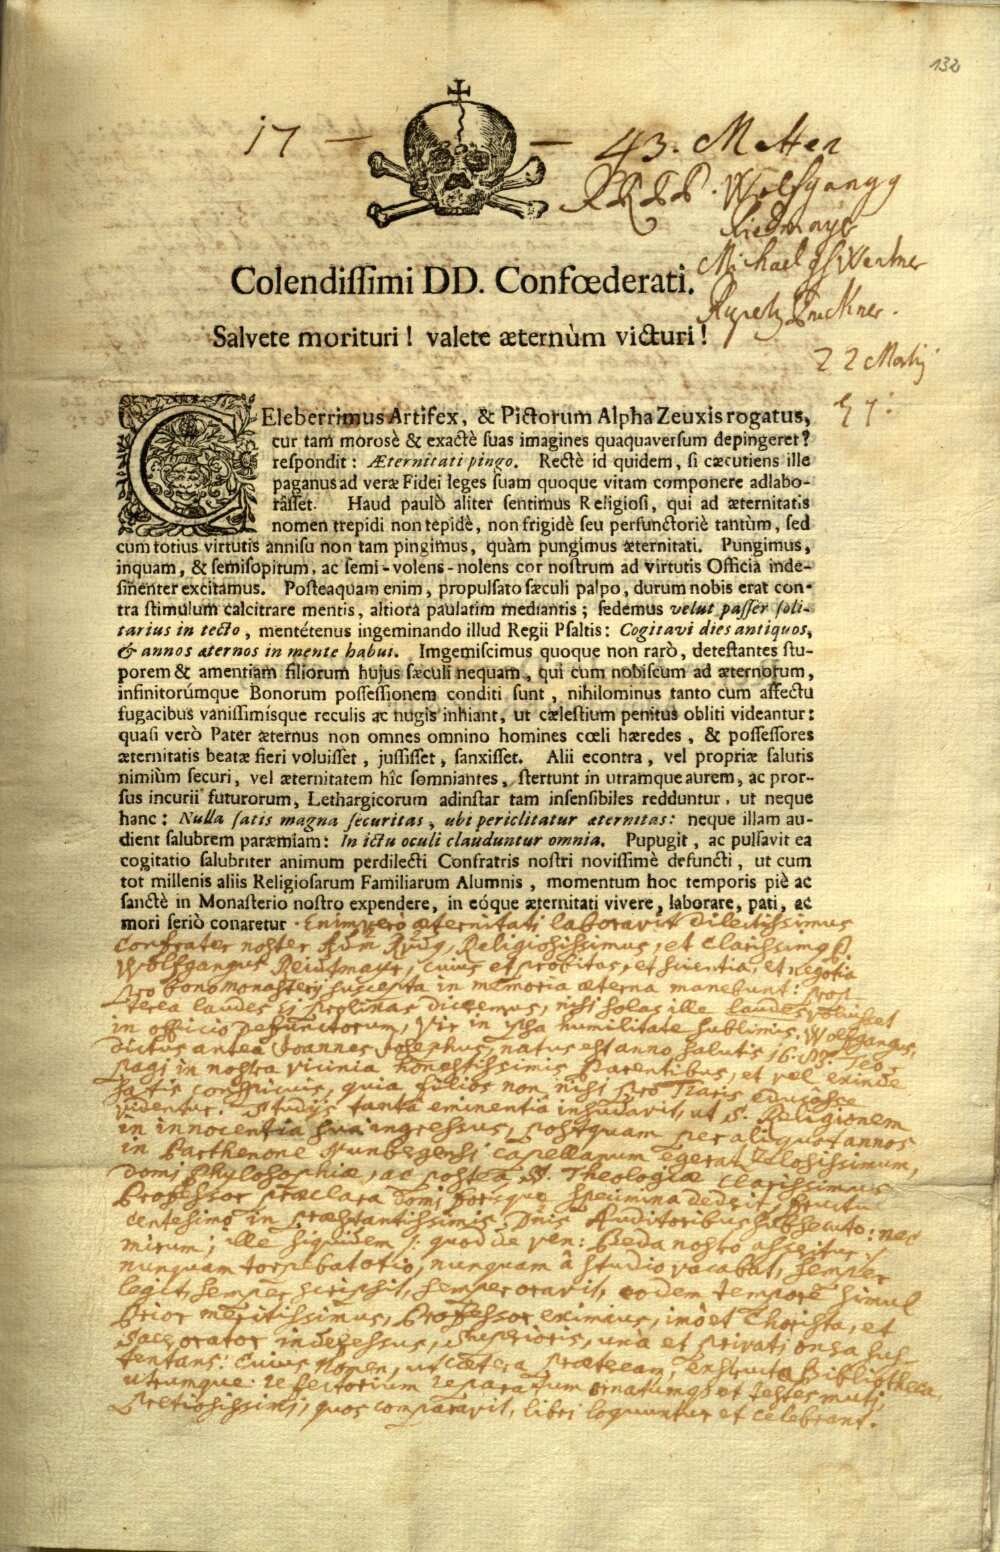 132
17 — — 43. Metten
Wolfgang
Michael
22 Martij
Colendiſſimi DD. Confœderati.
Salvete morituri! valete æternùm victuri!
CEleberrimus Artifex, & Pictorum Alpha Zeuxis rogatus,
cur tam morosè & exactè ſuas imagines quaquaversum depingeret?
reſpondit: Æternitati pingo. Rectè id quidem, ſi cæcutiens ille
paganus ad veræ Fidei leges ſuam quoque vitam componere adlabo-
râſſet. Haud paulò aliter ſentimus Religioſi, qui ad æternitatis
nomen trepidi non tepidè, non frigidè ſeu perfunctoriè tantùm, ſed
cum totius virtutis anniſu non tam pingimus, quàm pungimus æternitati. Pungimus,
inquam, & ſemiſopitum, ac ſemi-volens-nolens cor noſtrum ad virtutis Officia inde-
ſinenter excitamus. Poſteaquam enim, propulſato ſæculi palpo, durum nobis erat con-
tra ſtimulum calcitrare mentis, altiora paulatim mediantis; ſedemus velut paſſer ſoli-
tarius in tecto, mentétenus ingeminando illud Regii Pſaltis: Cogitavi dies antiquos,
& annos æternos in mente habui. Imgemiſcimus quoque non rarò, deteſtantes ſtu-
porem & amentiam filiorum hujus ſæculi nequam, qui cum nobiſcum ad æternorum,
infinitorúmque Bonorum poſſeſſionem conditi ſunt, nihilominus tanto cum affectu
fugacibus vaniſſimíſque reculis ac nugis inhiant, ut cæleſtium penitus obliti videantur:
quaſi verò Pater æternus non omnes omnino homines cœli hæredes, & poſſeſſores
æternitatis beatæ fieri voluiſſet, juſſiſſet, ſanxiſſet. Alii econtra, vel propriæ ſalutis
nimiùm ſecuri, vel æternitatem hîc ſomniantes, ſtertunt in utramque aurem, ac pror-
sus incurii futurorum, Lethargicorum adinſtar tam inſenſibiles redduntur, ut neque
hanc: Nulla ſatis magna ſecuritas, ubi periclitatur æternitas: neque illam au-
dient ſalubrem paræmiam: In ictu oculi clauduntur omnia. Pupugit, ac pulſavit ea
cogitatio ſalubriter animum perdilecti Confratris noſtri noviſſimè defuncti, ut cum
tot millenis aliis Religioſarum Familiarum Alumnis, momentum hoc temporis piè ac
ſanctè in Monaſterio noſtro expendere, in eóque æternitati vivere, laborare, pati, ac
mori ſeriò conaretur. Enimvero æternitati laboravit dilectissimus
Confrater noster Religiosissimus, et Clarissimus P.
Wolfgangus cuius et probitas, et scientia, et negotia
pro bono monasterij suscepta in memoria æterna manebunt: prop-
terea laudes si prolixas diceremus, nisi solas ille laudes voluisset
in officio defunctorum, vir in ipsa humilitate sublimis. Wolfgangus,
dictus antea Joannes Josephus, natus est anno salutis
pagi in nostra vicinia honestissimis parentibus, et vel exinde
satis conspicuis, quia filios non nisi pro
videntur. Studijs tanta eminentiâ insudavit, ut S. Religionem
in innocentia sua ingressus, postquam per aliquot annos
in Parthenone capellanum egerat zelosissimum,
domi Phylosophiæ, ac postea S. Theologiæ clarissimus
Professor præclara domi forisque specimina dedit, fructu
centesimo in præstantissimis Dnis Auditoribus subsecuto: nec
mirum; ille siquidem /: quod de ven: Beda nostro asseritur :/
nunquam torpebat otio, nunquam â studio vacabat, semper
legit, semper scripsit, semper oravit, eodem tempore simul
Prior meritissimus, Professor eximius, imò et Chorista, et
Sacer orator indefessus, Superioris, unà et privati onera sus-
tentans: Cuius Nomen, ut cætera præteream, exstructa Bibliotheca,
utrumque refectorium reparatum ornatumq; et testes muti,
pretiosissimi, quos comparavit, libri loquuntur et celebrant.